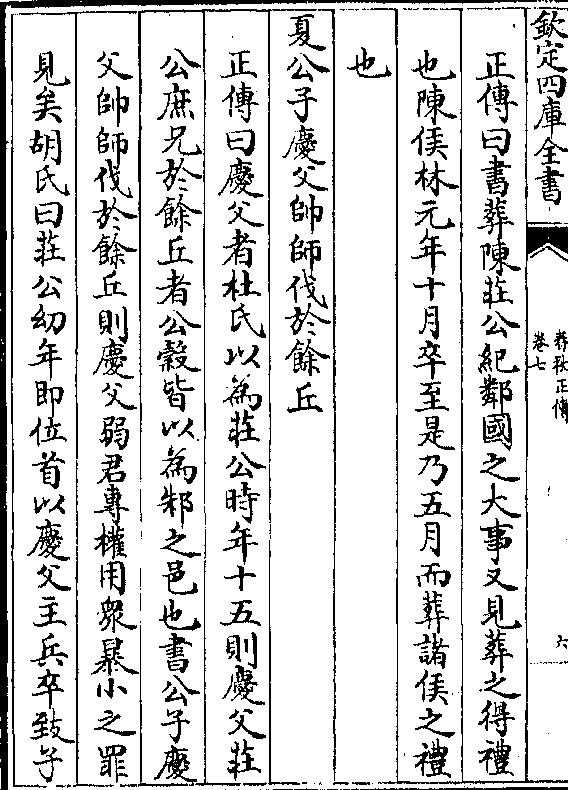 欽定四庫全書
春秋正傳
卷七
六
正傳曰書葬陳莊公紀鄰國之大事又見葬之得禮
也陳侯林元年十月卒至是乃五月而葬諸侯之禮
也
夏公子慶父帥師伐於餘丘
正傳曰慶父者杜氏以為莊公時年十五則慶父莊
公庶兄於餘丘者公穀皆以為邾之邑也書公子慶
父帥師伐於餘丘則慶父弱君專權用衆暴小之罪
見矣胡氏曰莊公幼年即位首以慶父主兵卒致子